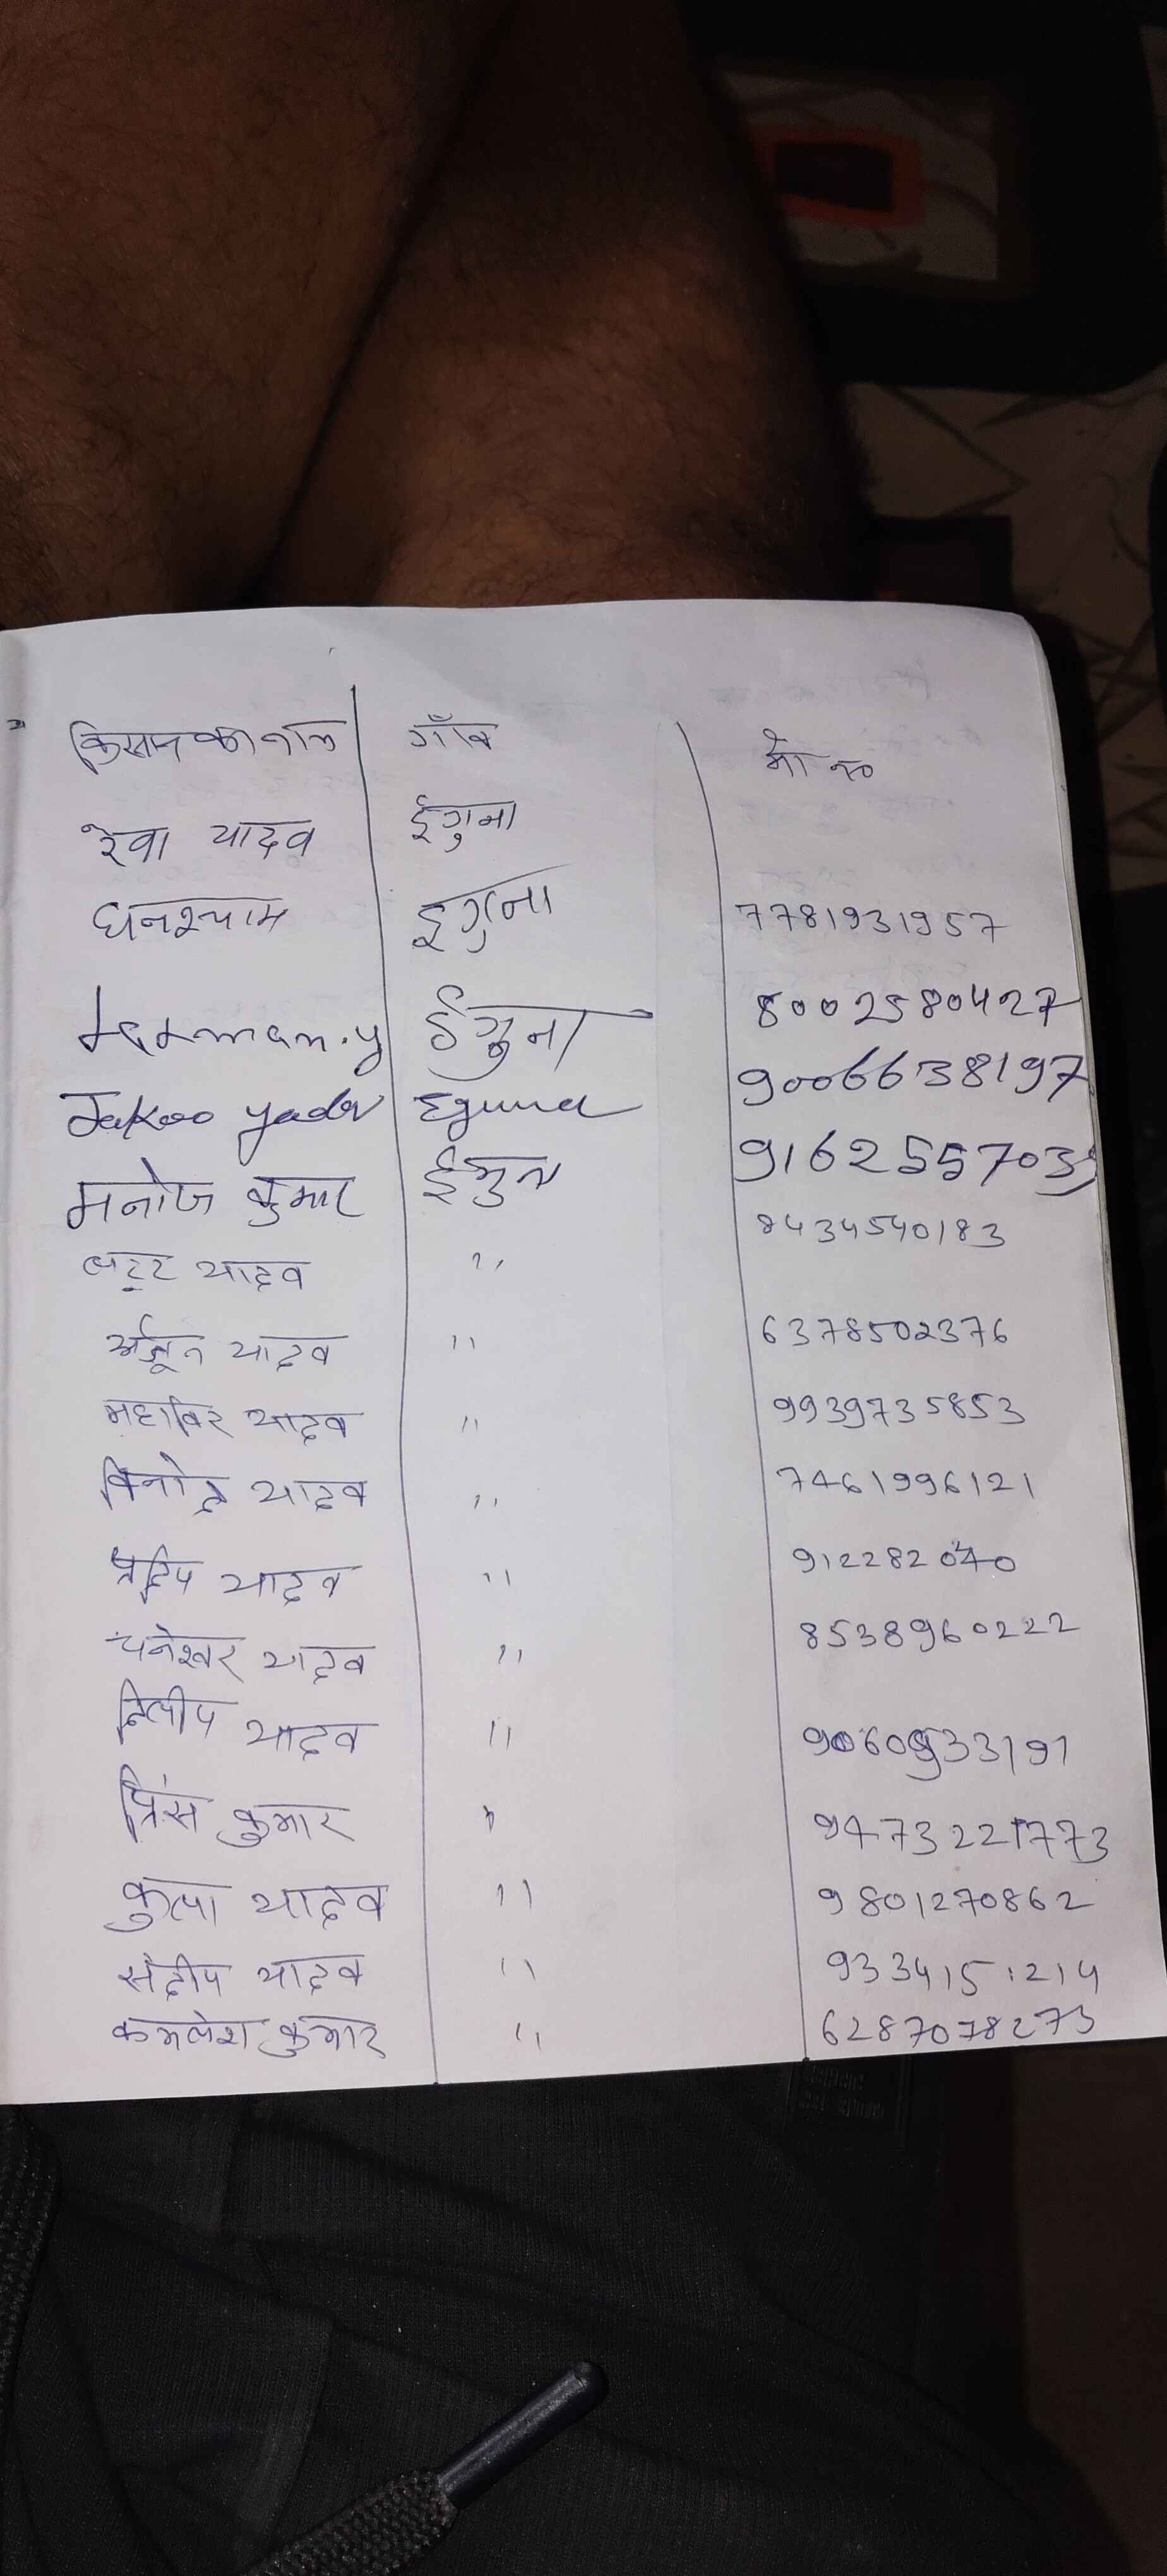 किसान का नाम गाँव मो न०
रेवा यादव ईगुना
घनश्याम ईगुना 7781931957
ईगुना 8002580427
yadav Eguna 9006638197
मनोज कुमार ईगुना 9162557039
यादव " 8434540183
अर्जून यादव " 6378502376
महाविर यादव " 9939735853
विनोद यादव " 7461996121
प्रदिप यादव " 912282040
धनेश्वर यादव " 8538960222
दिलीप यादव " 9060933191
प्रिंस कुमार " 9473221773
कुला यादव " 9801270862
संदीप यादव " 9334151214
कमलेश कुमार " 6287078273